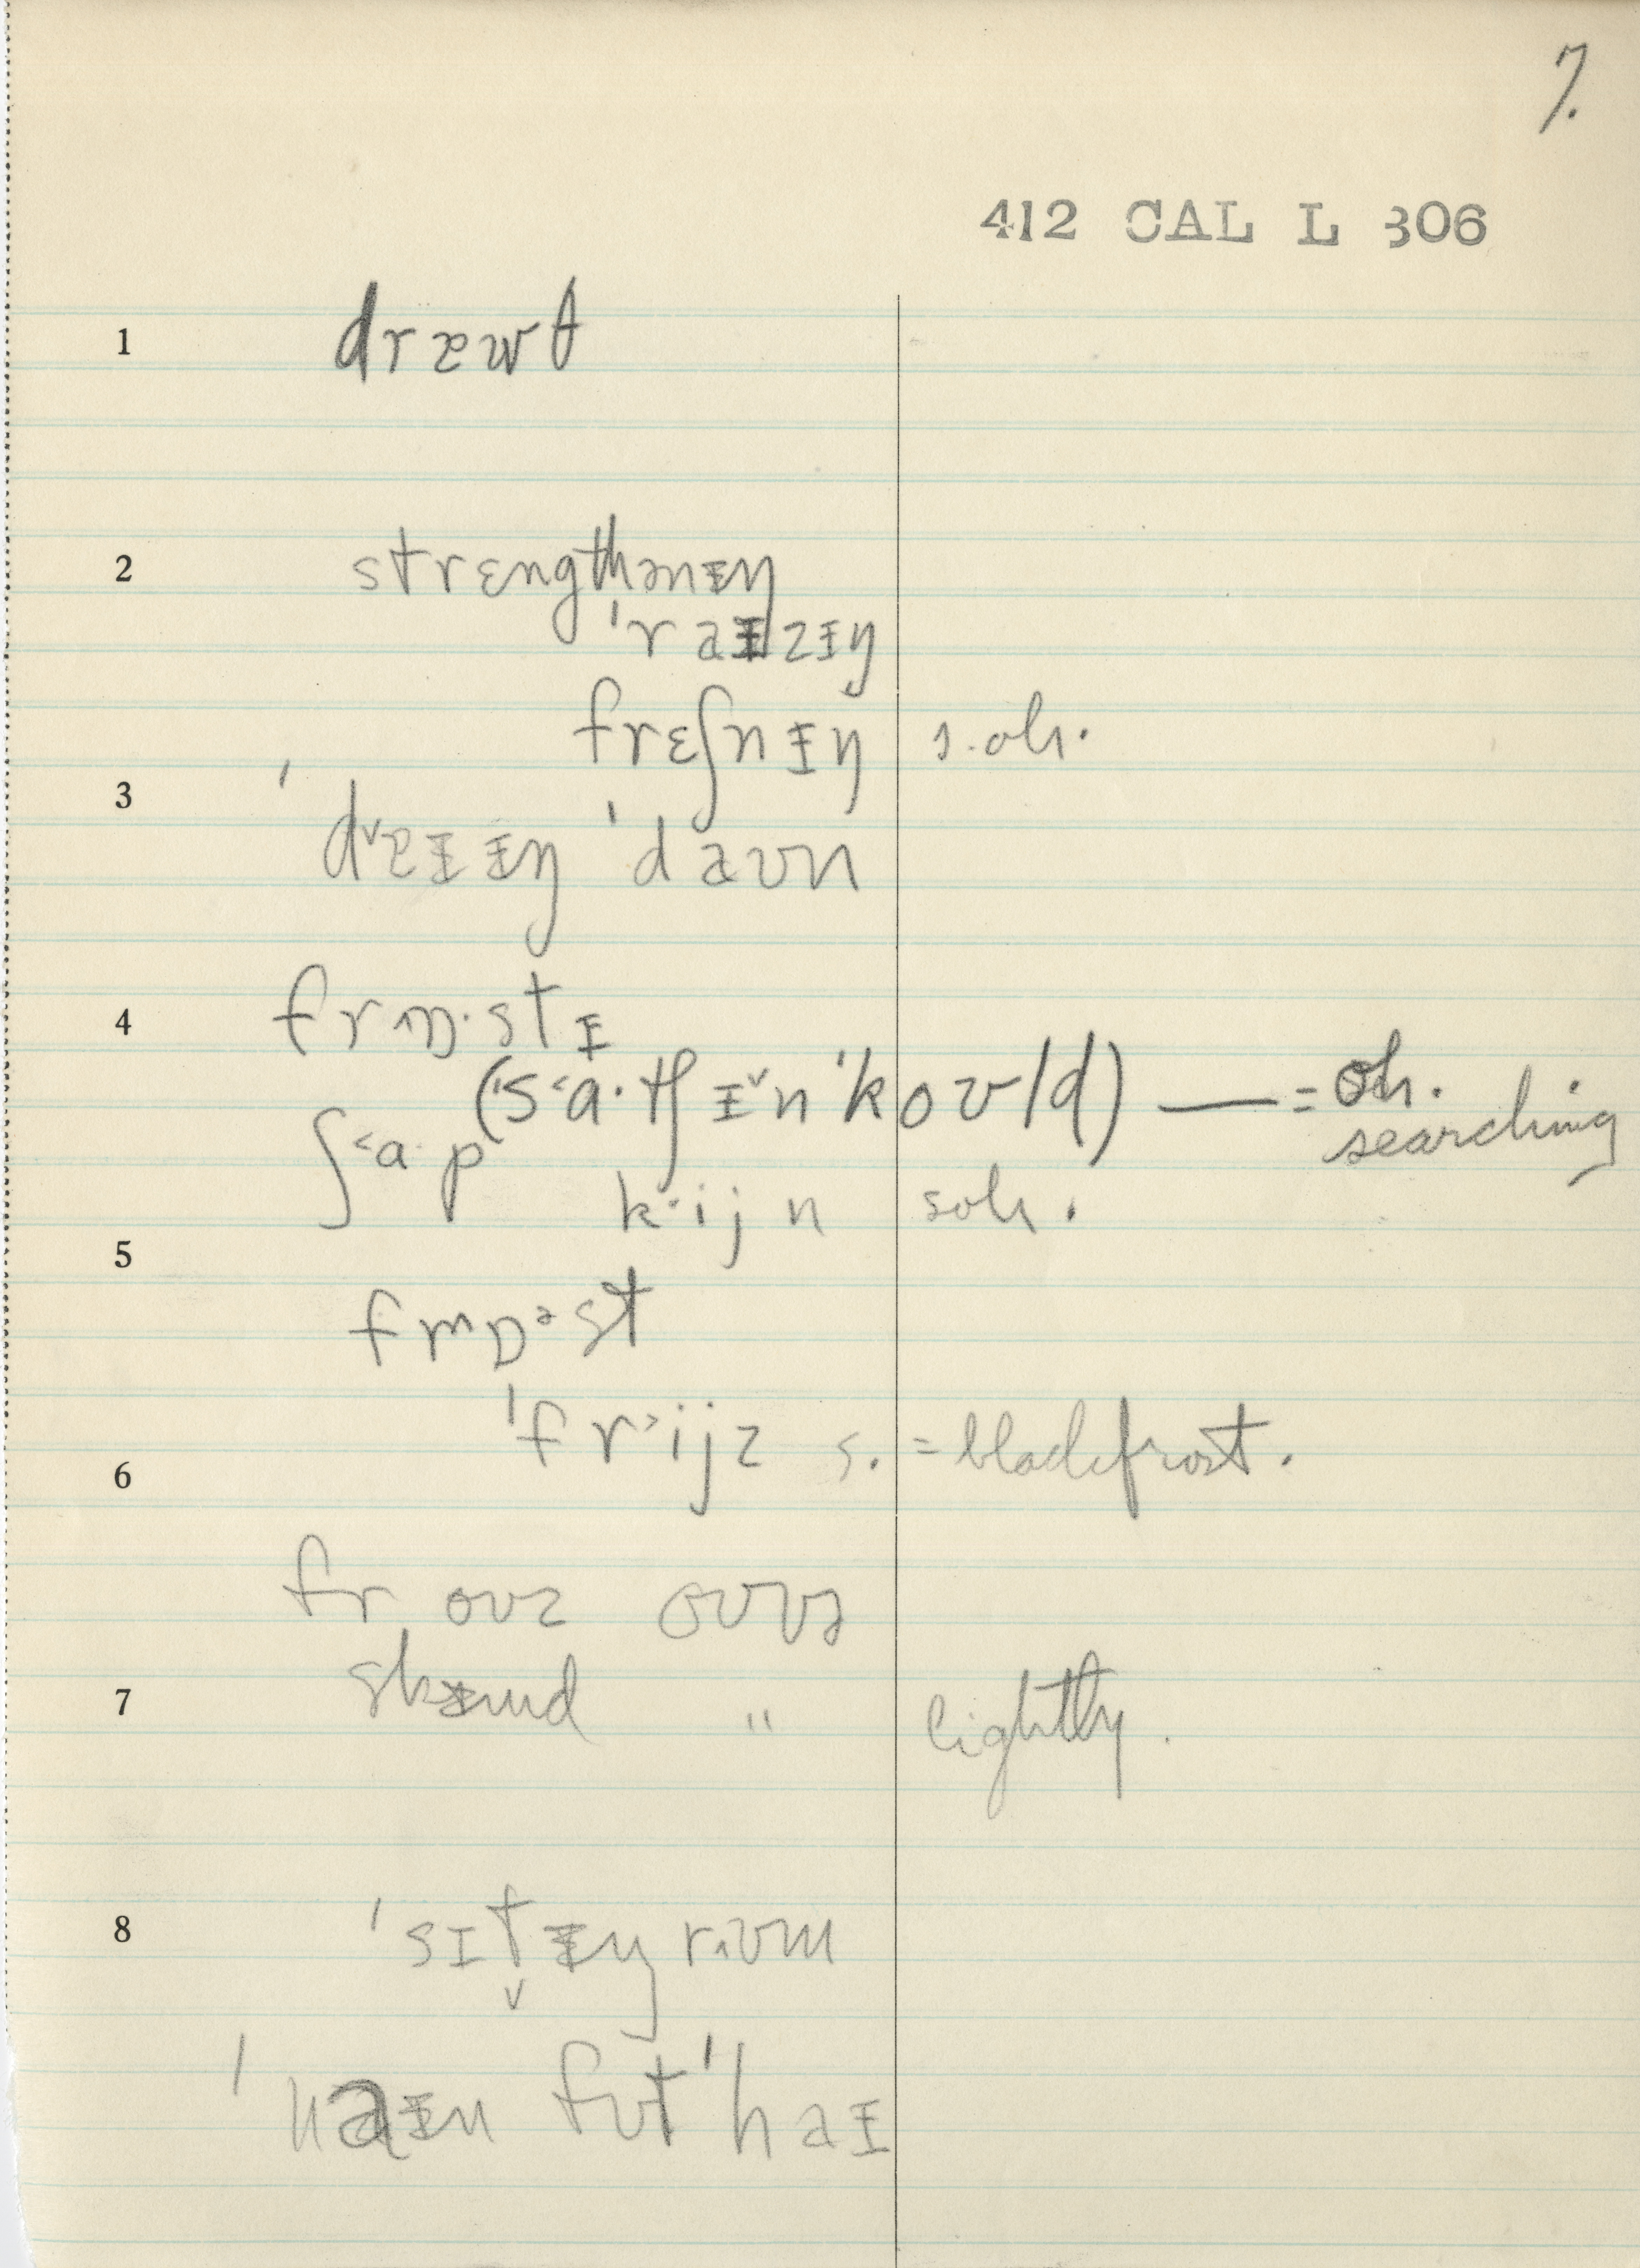 7.
412 CAL L 306
1 dræwθ
2 strɛngthənᵻŋ
'raᵻzᵻŋ
frɛʃnᵻŋ s.oh.
3 'dræᵻᵻŋ 'daʊn
4 frɒ·stᵻ
('sa·tʃᵻn 'koʊld) — = oh. searching
ʃa·p
k·ijn soh.
5
frɒəst
'frijz s. = black frost.
6
froʊz oʊvə
skᵻmd " lightly.
7
8 'sɪtᵻŋ rʊm
'naᵻn fʊt 'haᵻ